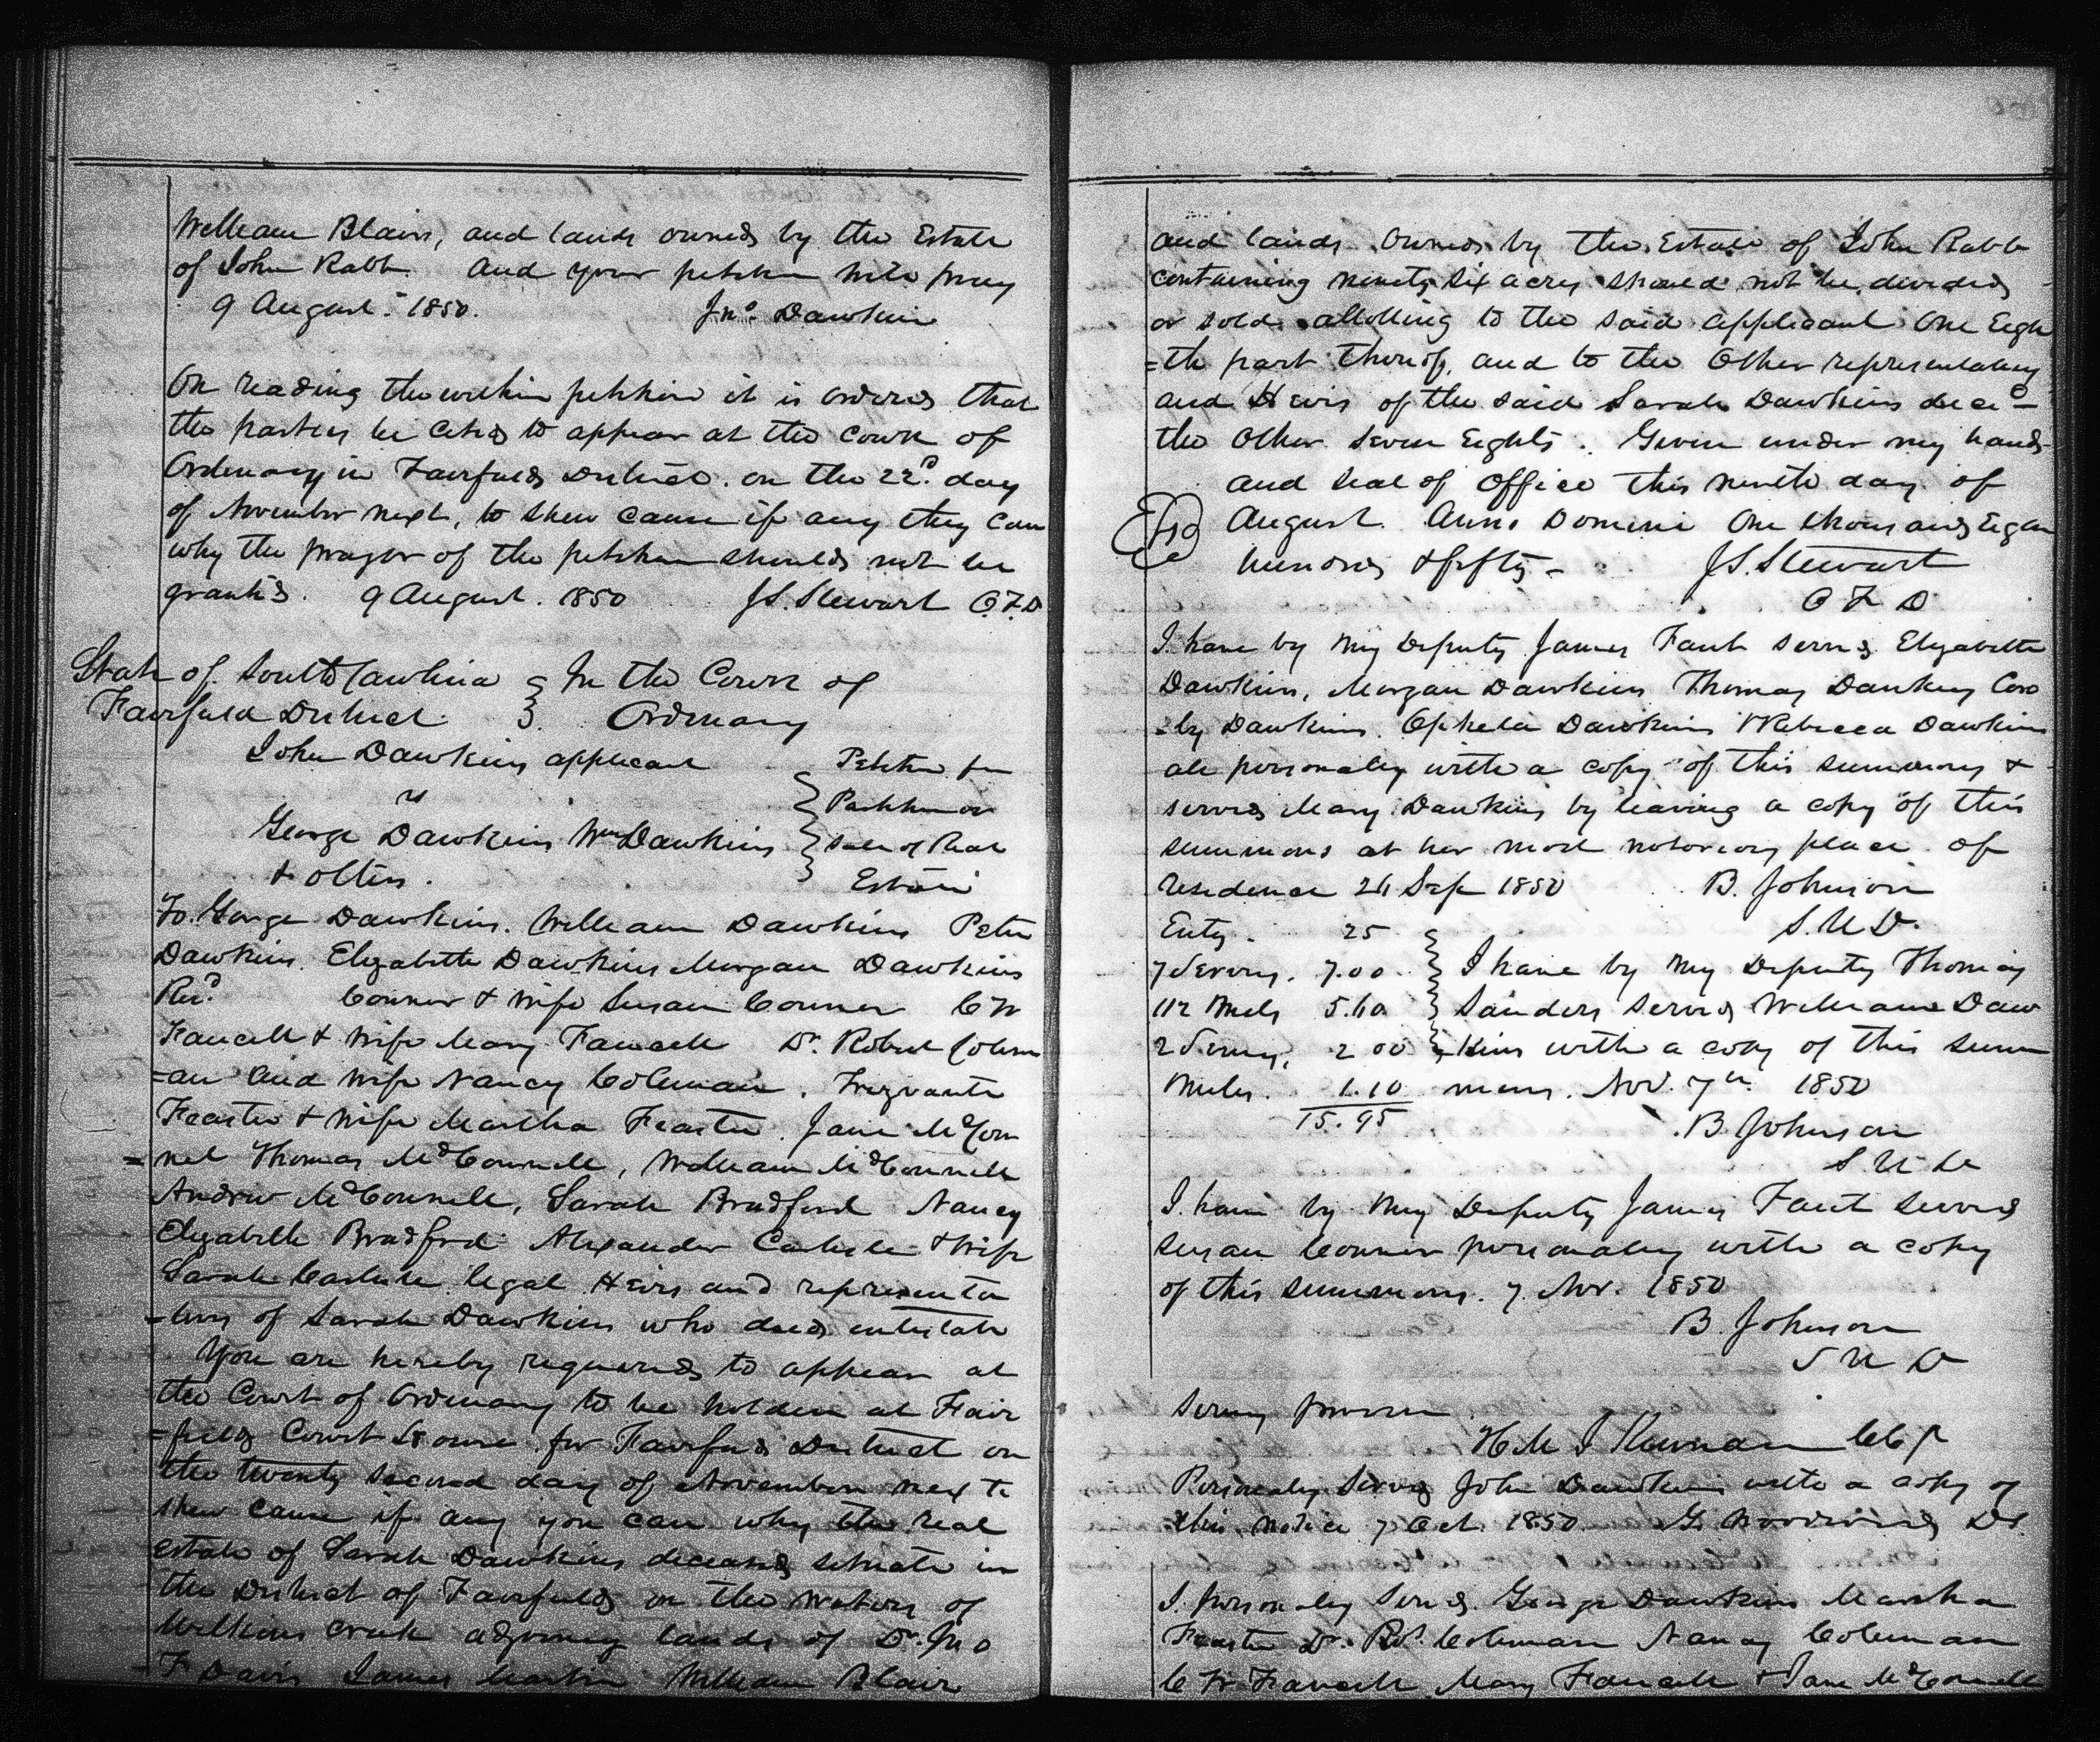 William Blair, and lands owned by the Estate
of John Rabb. And your petitioner will pray
9 August. 1850. Jno. Dawkins
On reading the within petition it is ordered that
the parties be cited to appear at the Court of
Ordinary in Fairfield District. on the 22d. day
of November next, to shew cause if any they can
why the prayer of the petition should not be
granted. 9 August. 1850 J.S. Stewart O.F.D
State of South Carolina } In the Court of
Fairfield District. } Ordinary
John Dawkins applicant } Petition for
vs } Partition or
George Dawkins Wm Dawkins } Sale of Real
& others. Estate
To. George Dawkins. William Dawkins Peter
Dawkins. Elizabeth Dawkins Morgan Dawkins
Conner & wife Susan Conner C W
Faucett & wife Mary Faucett Dr. Robert Colem
=an and wife Nancy Coleman.
Feaster & wife Martha Feaster. Jane McCon
=nel Thomas McConnell, William McConnell
Andrew McConnell, Sarah Bradford Nancy
Elizabeth Bradford Alexander Carlisle & wife
Sarah Carlisle legal Heirs and representa
=tives of Sarah Dawkins who died intestate
You are hereby required to appear at
the Court of Ordinary to be holden at Fair
=field Court House for Fairfield District on
the twenty second day of November next to
shew cause if any you can why the real
estate of Sarah Dawkins deceased situate in
the District of Fairfield on the waters of
Wilkins creek adjoining lands of Dr. Jno
F Davis James Martin William Blair
and lands. Owned by the Estate of John Rabb
containing ninety six acres should not be divided
or sold allotting to the said applicant One Eigh
=th part thereof, and to the Other representatives
and Heirs of the said Sarah Dawkins decd –
the Other Seven Eights. Given under my hand
and Seal of Office this ninth day of
August. Anno Domini One thousand Eigh
hundred & fifty – J.S. Stewart
O F D
I have by my Deputy James Faut served Elizabeth
Dawkins, Morgan Dawkins Thomas Dawkins Cros
=by Dawkins. Ophelia Dawkins Rebecca Dawkins
all personaley with a copy of this summons &
served Mary Dawkins by leaving a copy of this
summons at her most notorious place of
residence 24 Sep 1850 B. Johnson
Enty. 25 S.U.D.
7 Serving. 7.00 } I have by my Deputy Thomas
112 Miles 5.60 } Sanders served William Daw
2 Serving, 2 00 } kins with a copy of this sum
Miles. 1.10 mons. Nov. 7th 1850
15.95 B Johnson
S U D
I have by my Deputy James Faut served
Susan Conner personaley with a copy
of this summons. 7 Nov. 1850
B. Johnson
S U D
Serving
Personaley Served John Dawkins with a copy of
this notice 7 Oct. 1850 G. Woodward DS.
I. personaley served. George Dawkins Martha
Feaster Dr. Rot. Coleman Nancy Coleman
C W Faucett Mary Faucett & Jane McConnell